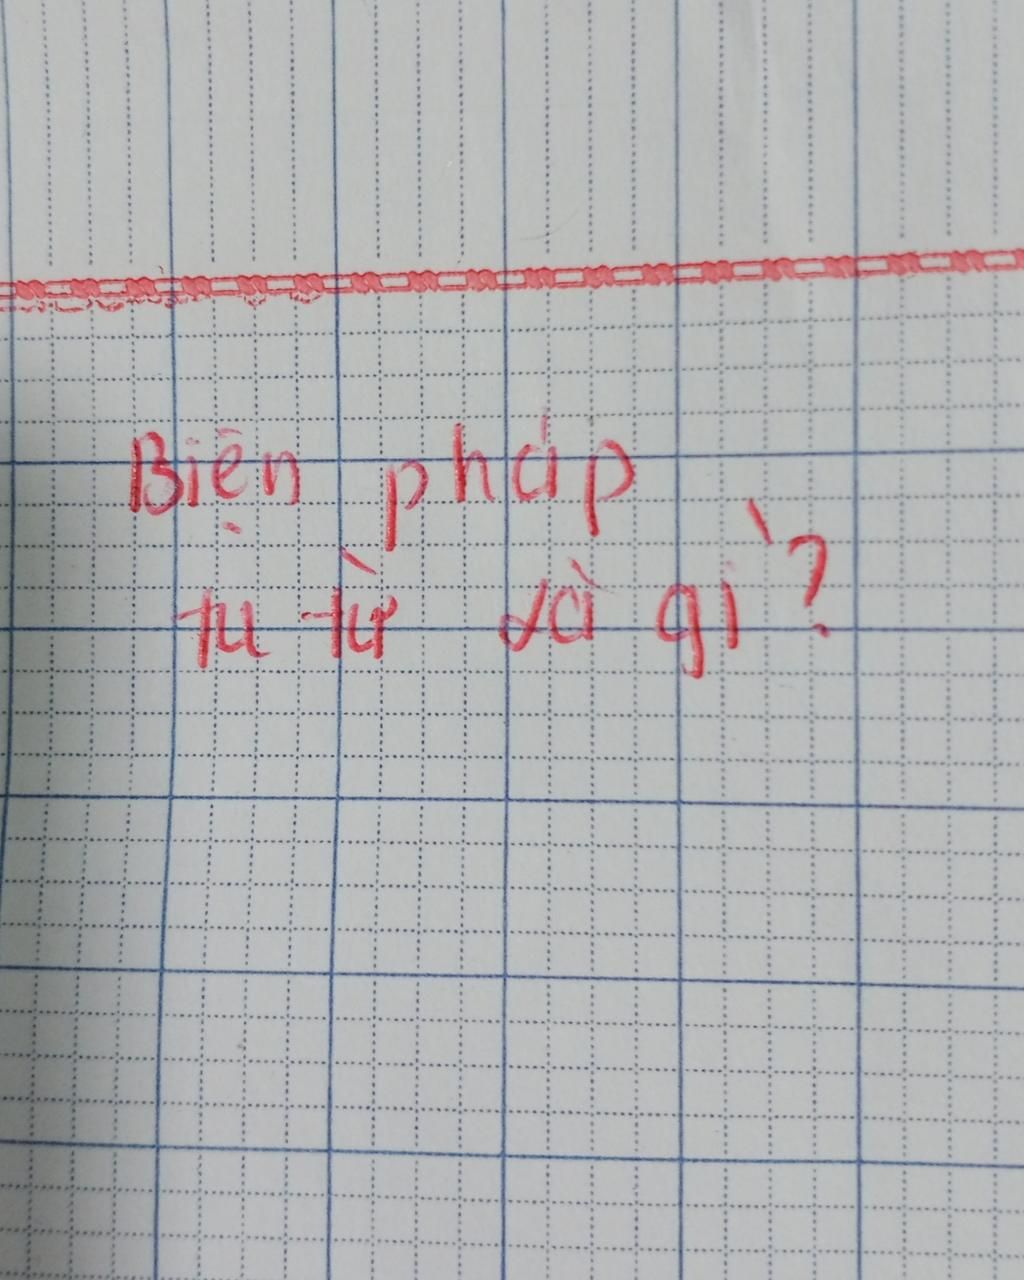 Biện pháp
tu từ là gì?